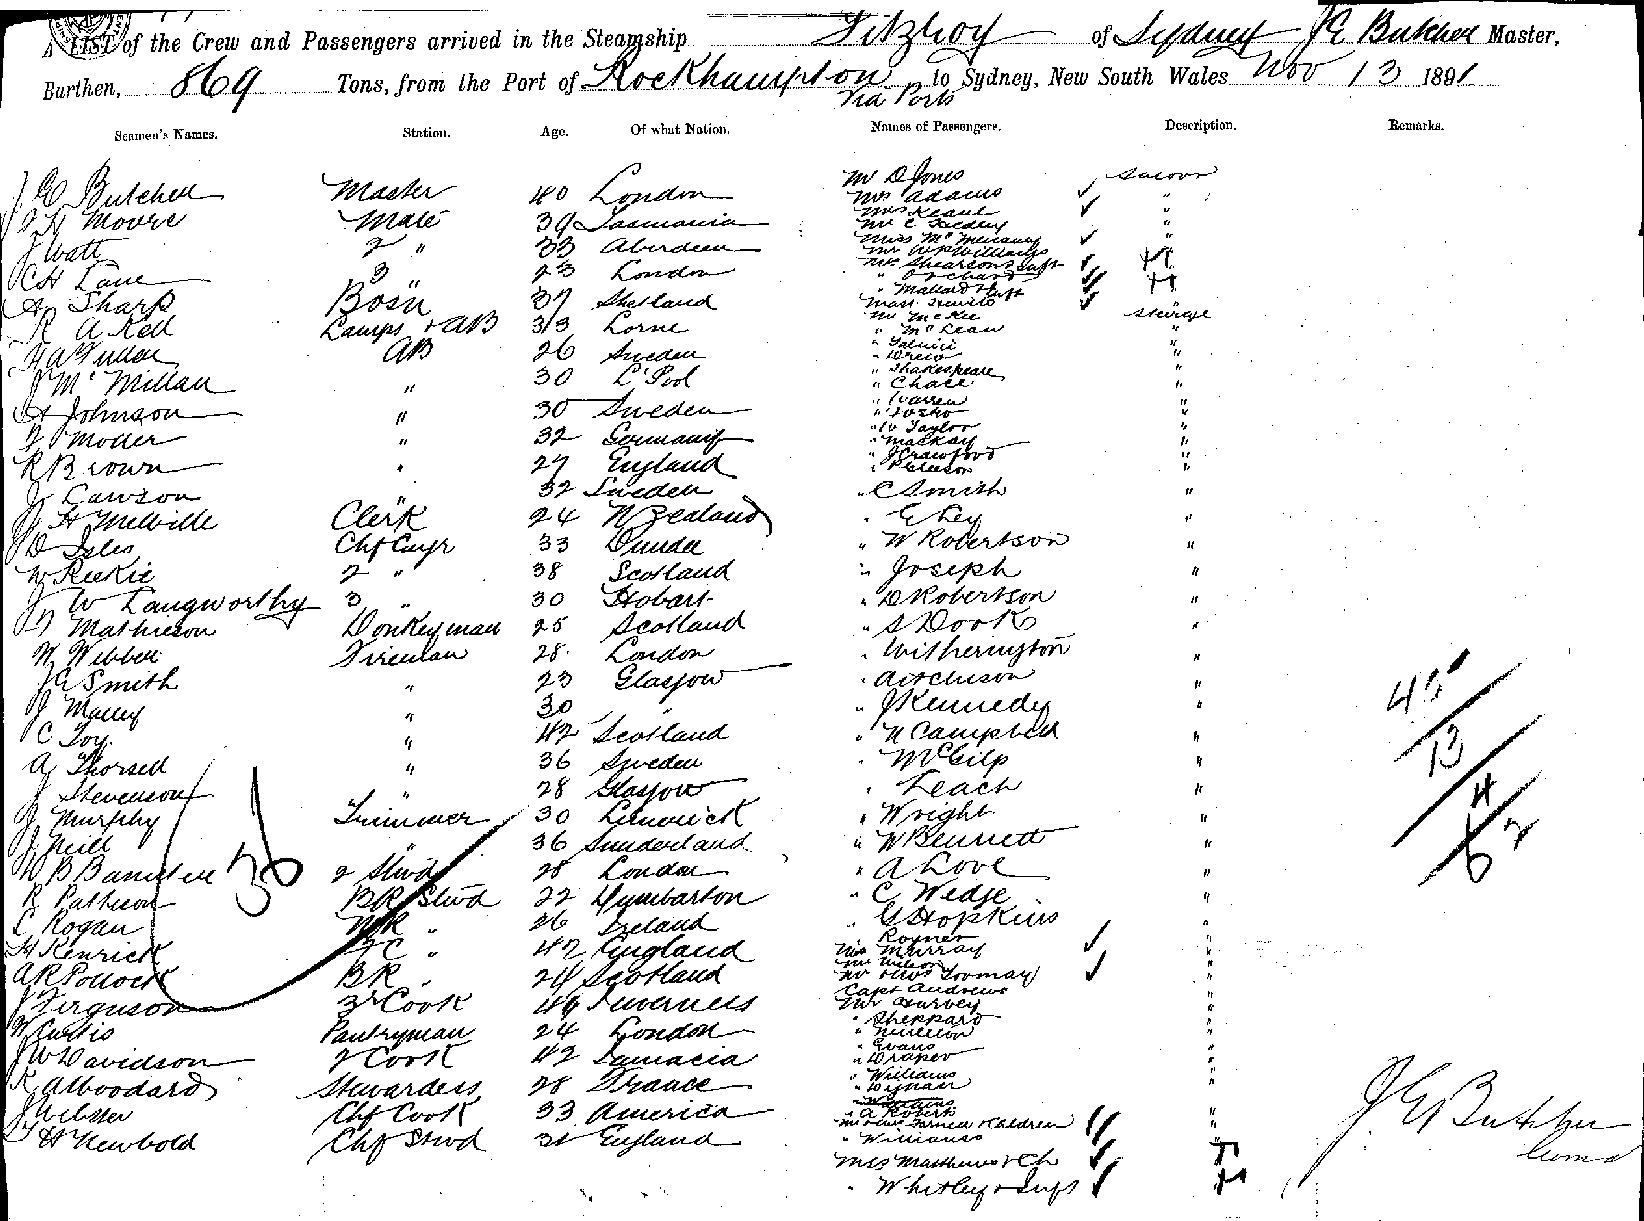 A LIST of the Crew and Passengers arrived in the Steamship Fitzroy of Sydney J E Butcher Master,
Burthen, 869 Tons, from the Port of Rockhampton to Sydney, New South Wales Nov 13 1891
Via Ports
Seamen's Names. Station. Age. Of what Nation. Names of Passengers. Description. Remarks.
J E Butcher Master 40 London
Moore Mate 39 Tasmania
J Watt 2 " 33 Aberdeen
C H Lane 3 " 23 London
Sharp Bosn 37 Shetland
R A Kell Lamps & AB 33 Lorne
AB 26 Sweden
J McMillan " 30 L'Pool
A Johnson " 30 Sweden
Moller " 32 Germany
R Brown " 27 England
J Lawson " 32 Sweden
J H Melville Clerk 24 N Zealand
D Isles Chf Engr 33 Dundee
W Reekie 2 " 38 Scotland
J W Langworthy 3 " 30 Hobart
Mathieson Donkeyman 25 Scotland
W Webber Fireman 28 London
J G Smith " 23 Glasgow
J Malley " 30 "
C Toy " 42 Scotland
A Thorsell " 36 Sweden
J Stevenson " 28 Glasgow
J Murphy Trimmer 30 Limerick
J Neill " 36 Sunderland
W B 2 Stwd 28 London
R Pattison BR Stwd 22 Dumbarton
Rogan " 26 Ireland
H Kenrick " 42 England
A R Pollock BR " 24 Scotland
J Ferguson 3r Cook 49 Inverness
W Curtis Pantryman 24 London
J W Davidson 2 Cook 42 Jamacia
Woodard Stewardess 28 France
J Webster Chf Cook 33 America
H Newbold Chf Stwd 31 England
Mr D Jones Saloon
Mrs Adams "
Mrs "
Mr E "
Miss "
Mr Williams
Mrs Shearson & Inft
" Orchard
" Mallard & Inft
Mast
Mr McKee Steerge
" McLean "
"
"
" Shakespeare
" Chace "
" Warren
"
" W Taylor "
" Mackay "
" J Crawford "
"
" C Smith "
" E Key "
" W Robertson "
" Joseph "
" D Robertson "
" S Dook "
" Witherington "
" Aitchison "
" J Kennedy "
" N Campbell "
" McGilp "
" Leach "
" Wright "
" W Bennett "
" A Love "
" C Wedge "
" G Hopkins "
"
Mrs Murray "
Mr Wilson "
Mr & Mrs Toomay "
Capt Andrews "
Mr Harvey "
" Sheppard "
"
" Evans "
" Draper "
" Williams "
"
" A Roberts "
Mr & Mrs & Children "
" Williams
Mrs Matthews & Ch
" Whitley & Inft
36
45
13
4
62
J E Butcher